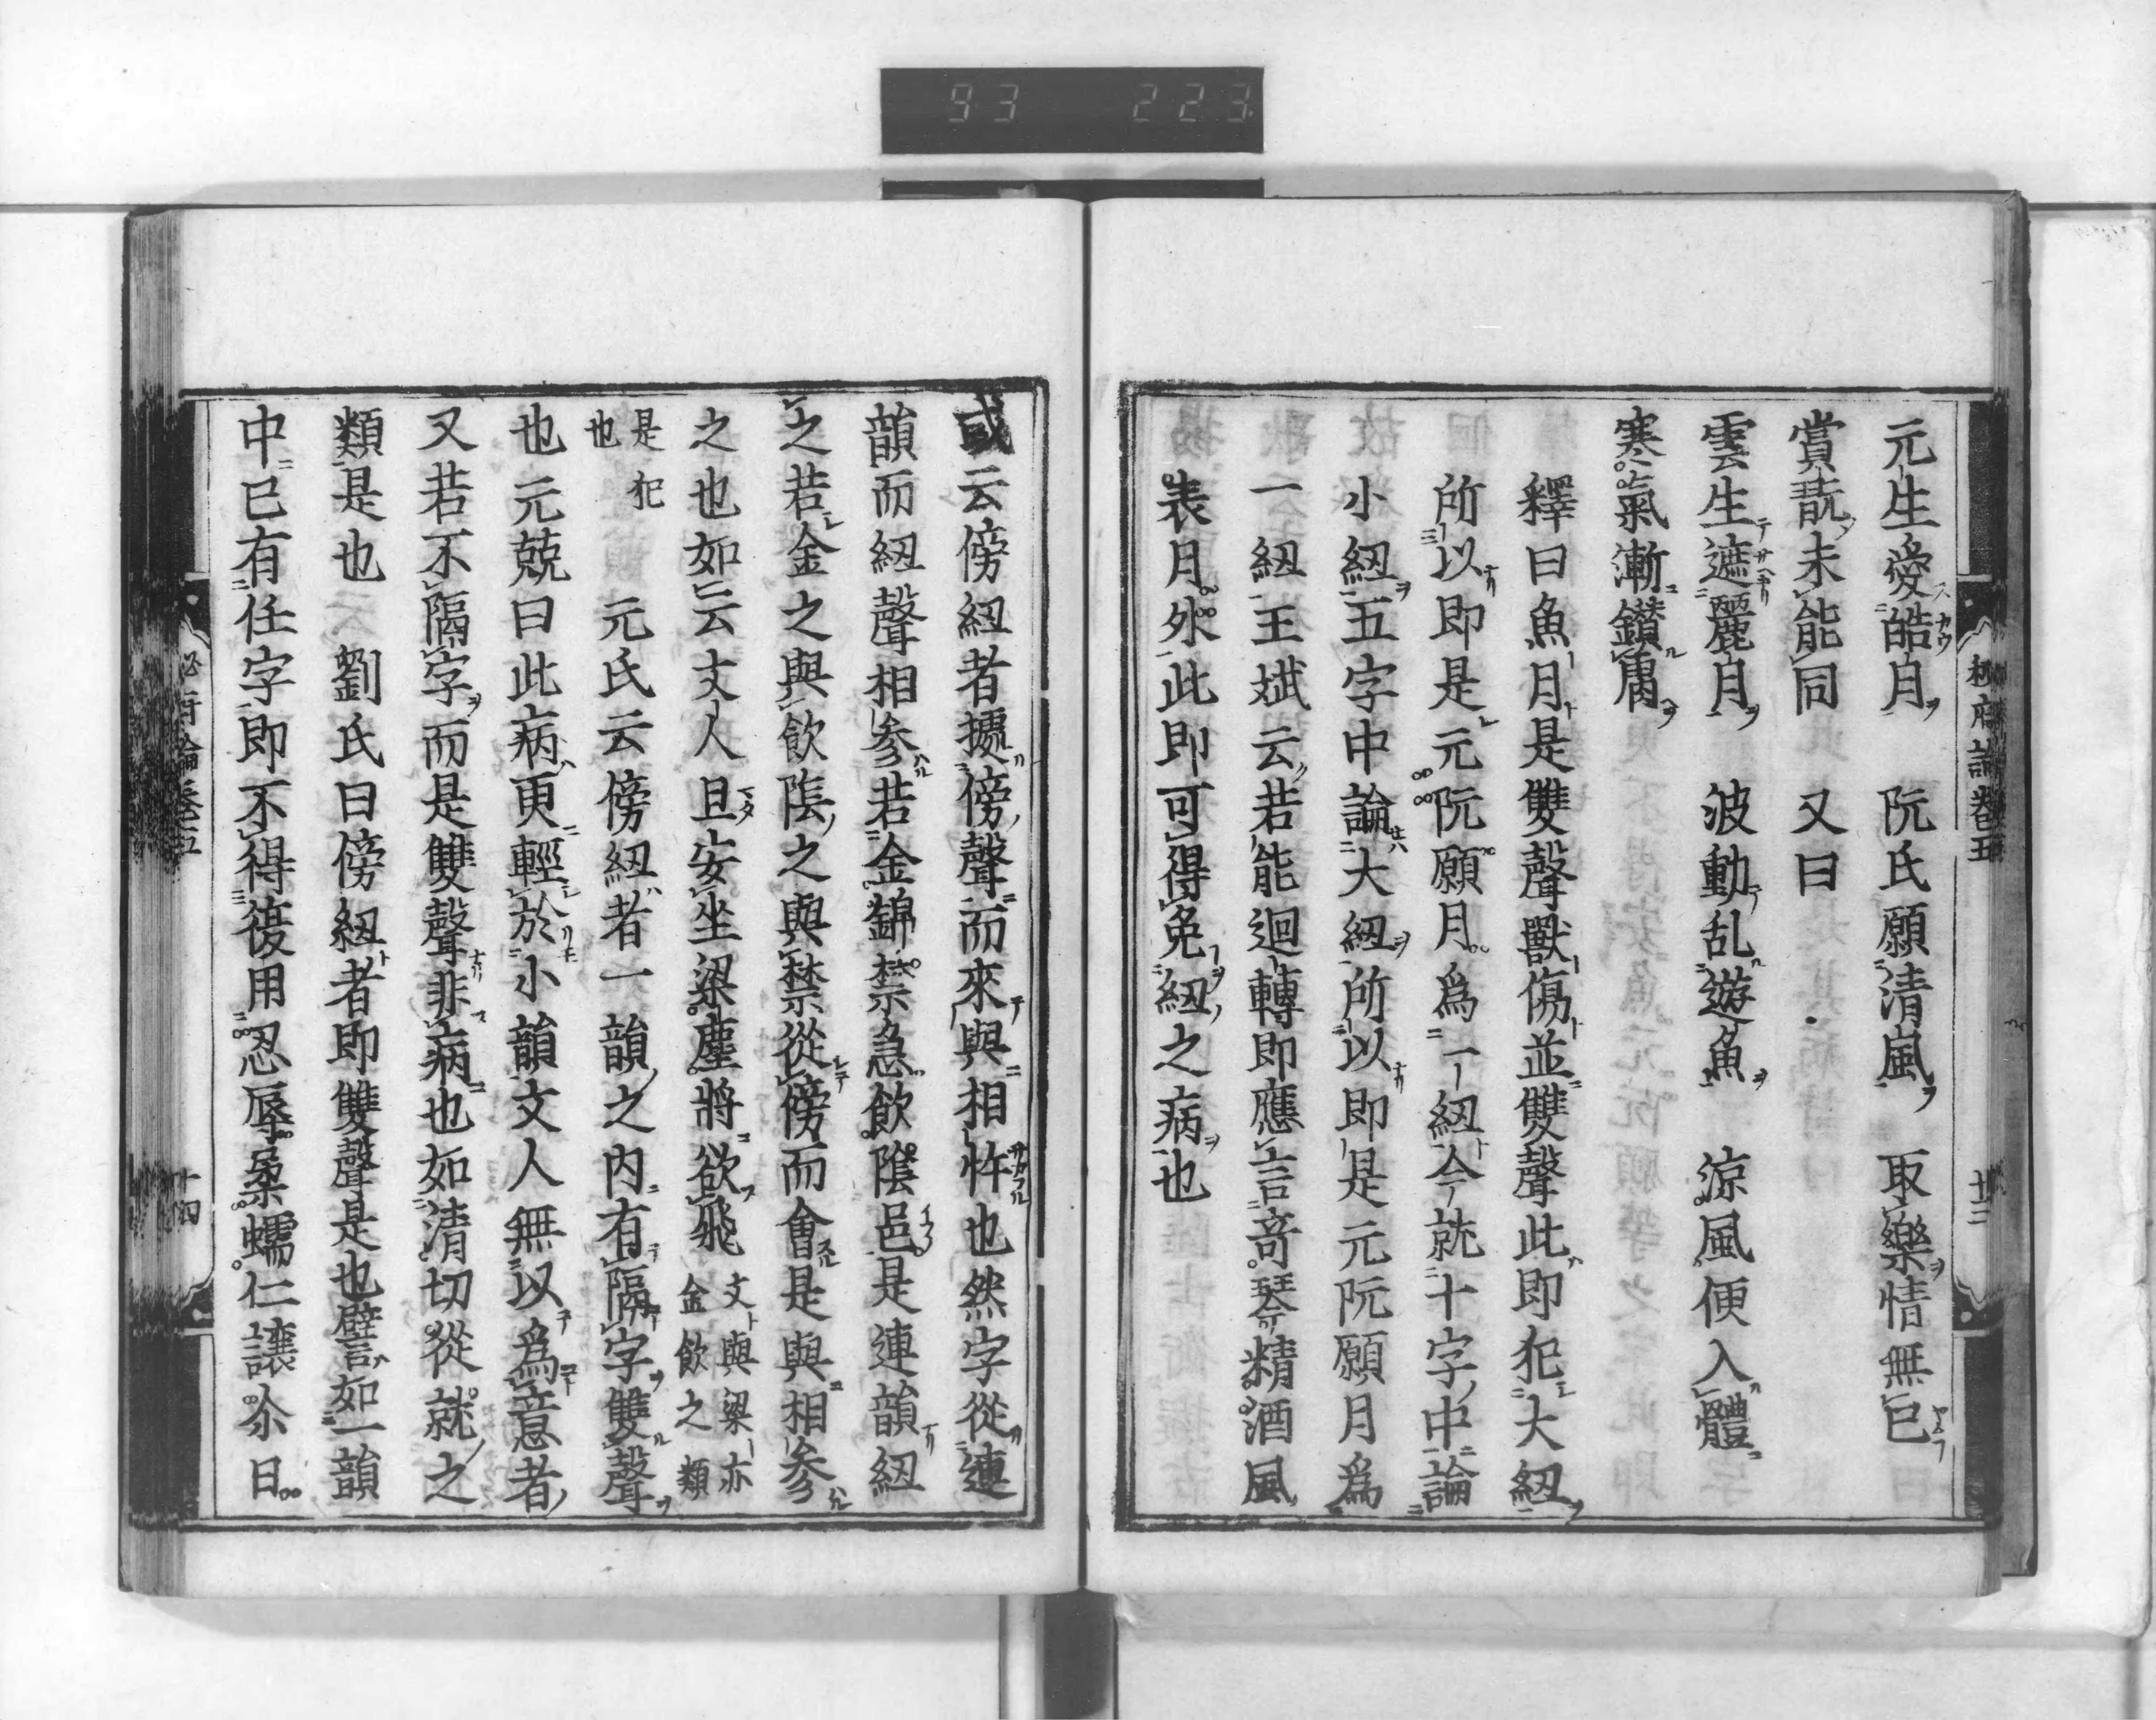 93 223
秘府論卷五 廿三
元生愛皓月 阮氏願清風 取樂情無已
賞翫未能同 又曰
雲生遮麗月 波動乱遊魚 涼風便入體
寒氣漸鑚膚
釋曰魚月是雙聲獸傷並雙聲此即犯大紐
所以即是元阮願月為一紐今就十字中論
小紐五字中論大紐所以即是元阮願月為
一紐王斌云若能迴轉即應言奇琴精酒風
表月外此即可得免紐之病也
或云傍紐者據傍聲而來與相忤也然字從連
韻而紐聲相參若金錦禁急飲隂邑是連韻紐
之若金之與飲隂之與禁從傍而會是與相參
之也如云丈人且安坐梁塵將欲飛 文與梁亦金飲之類
是犯也 元氏云傍紐者一韻之内有隔字雙聲
也元兢曰此病更輕於小韻文人無以為意者
又若不隔字而是雙聲非病也如清切從就之
類是也 劉氏曰傍紐者即雙聲是也譬如一韻
中已有任字即不得復用忍辱柔蠕仁讓尒日